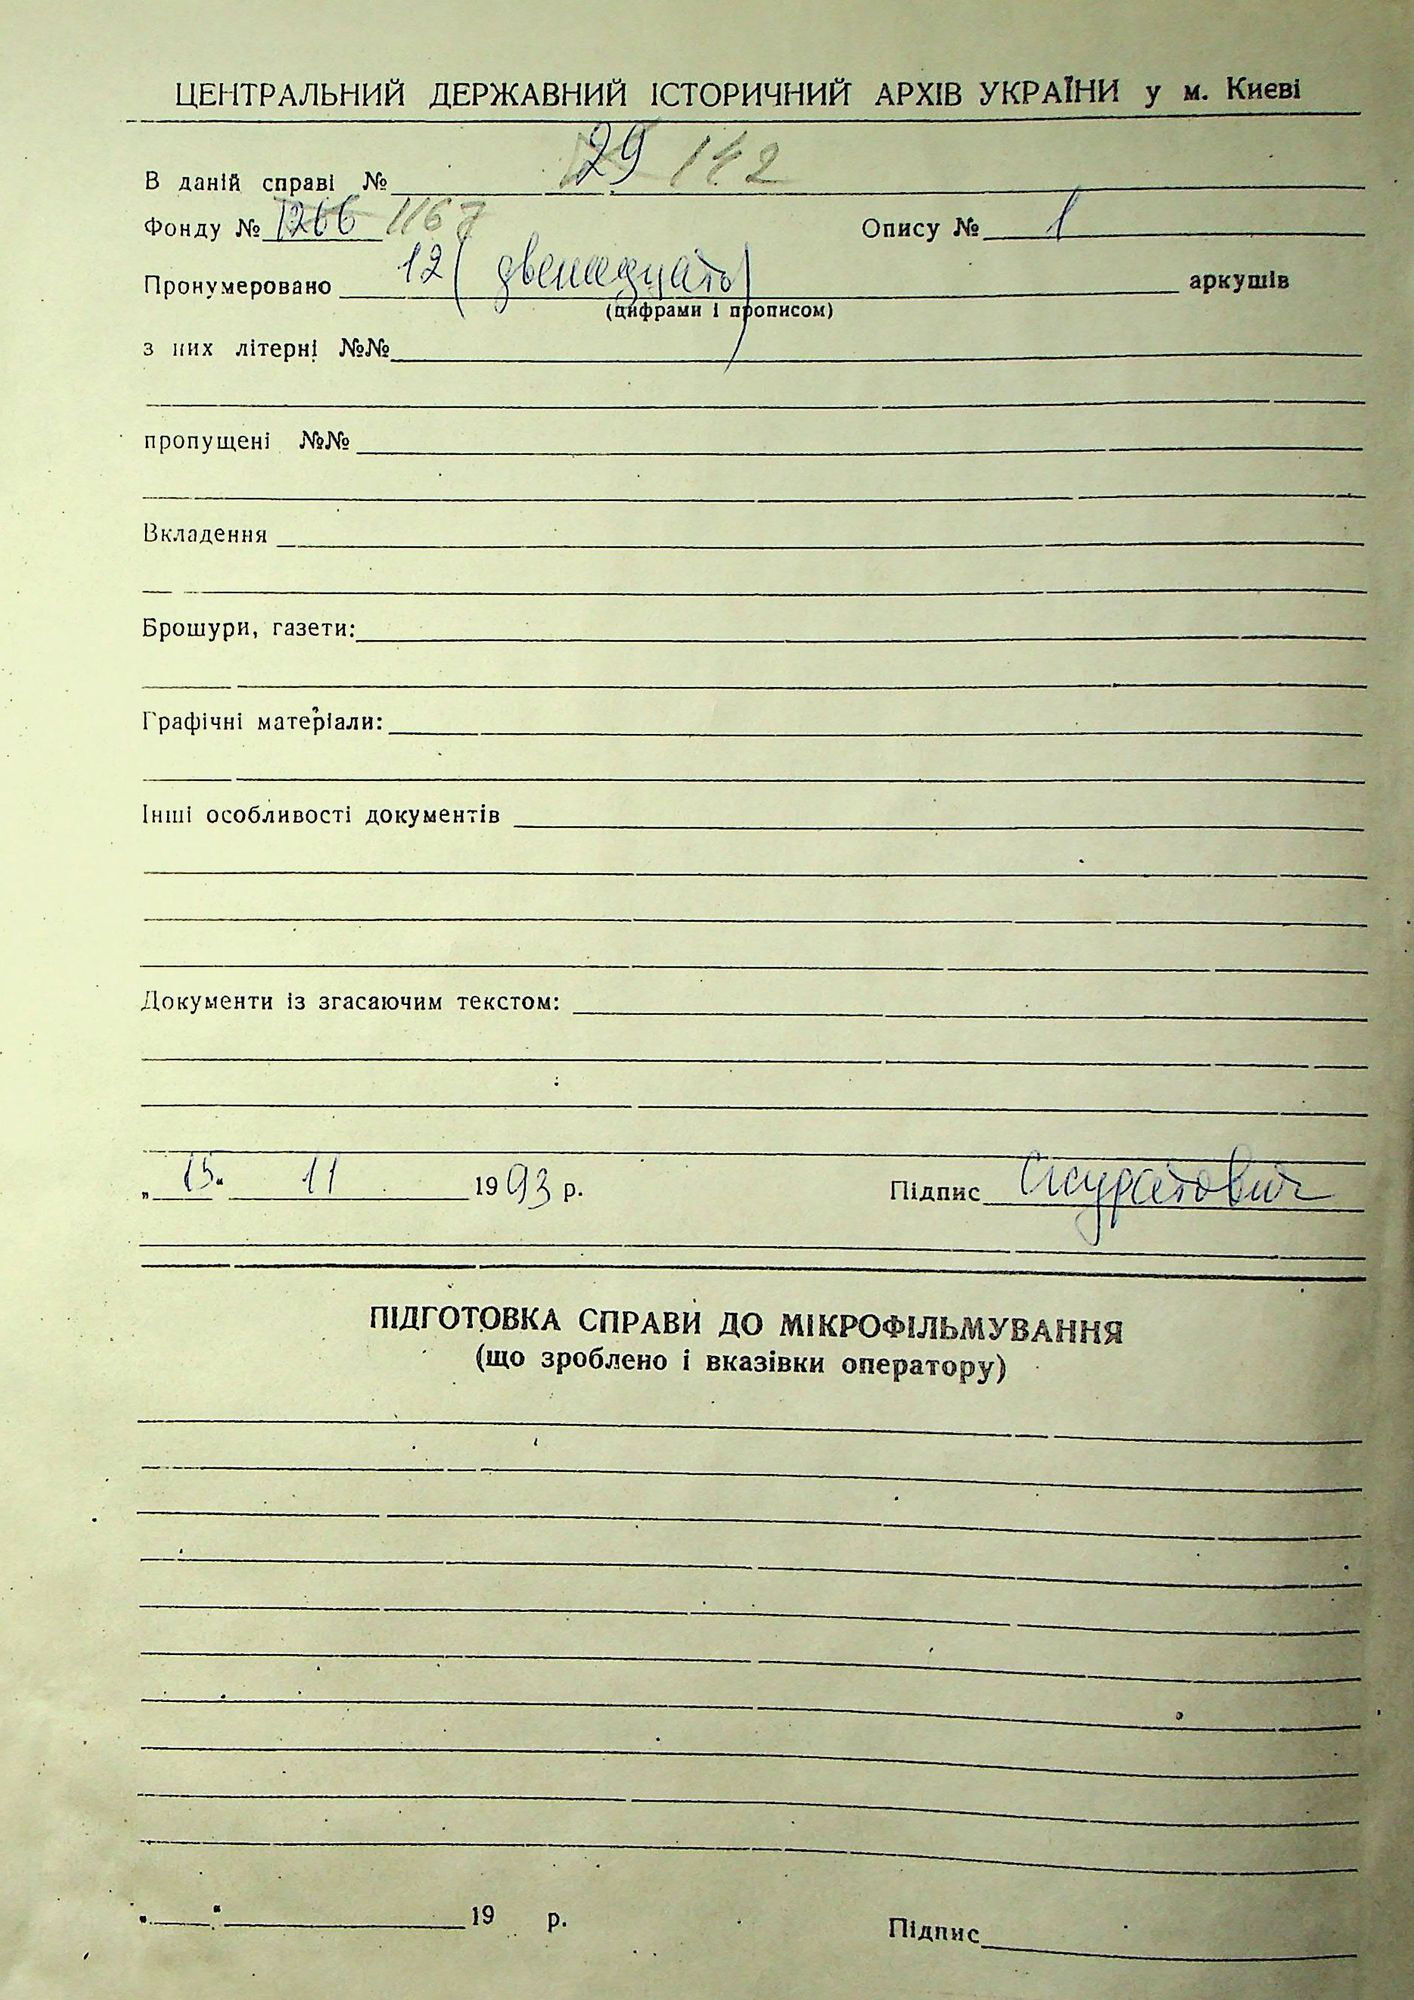 ЦЕНТРАЛЬНИЙ ДЕРЖАВНИЙ ІСТОРИЧНИЙ АРХІВ УКРАЇНИ у м. Києві
В даній справі № 29 142
Фонду № 1266 1167 Опису № 1
Пронумеровано 12 (двенадцать) аркушів
(цифрами і прописом)
з них літерні №№
пропущені №№
Вкладення
Брошури, газети:
Графічні матеріали:
Інші особливості документів
Документи із згасаючим текстом:
„15“ 11 1993 р. Підпис Скуратович
ПІДГОТОВКА СПРАВИ ДО МІКРОФІЛЬМУВАННЯ
(що зроблено і вказівки оператору)
„ “ 19 р. Підпис